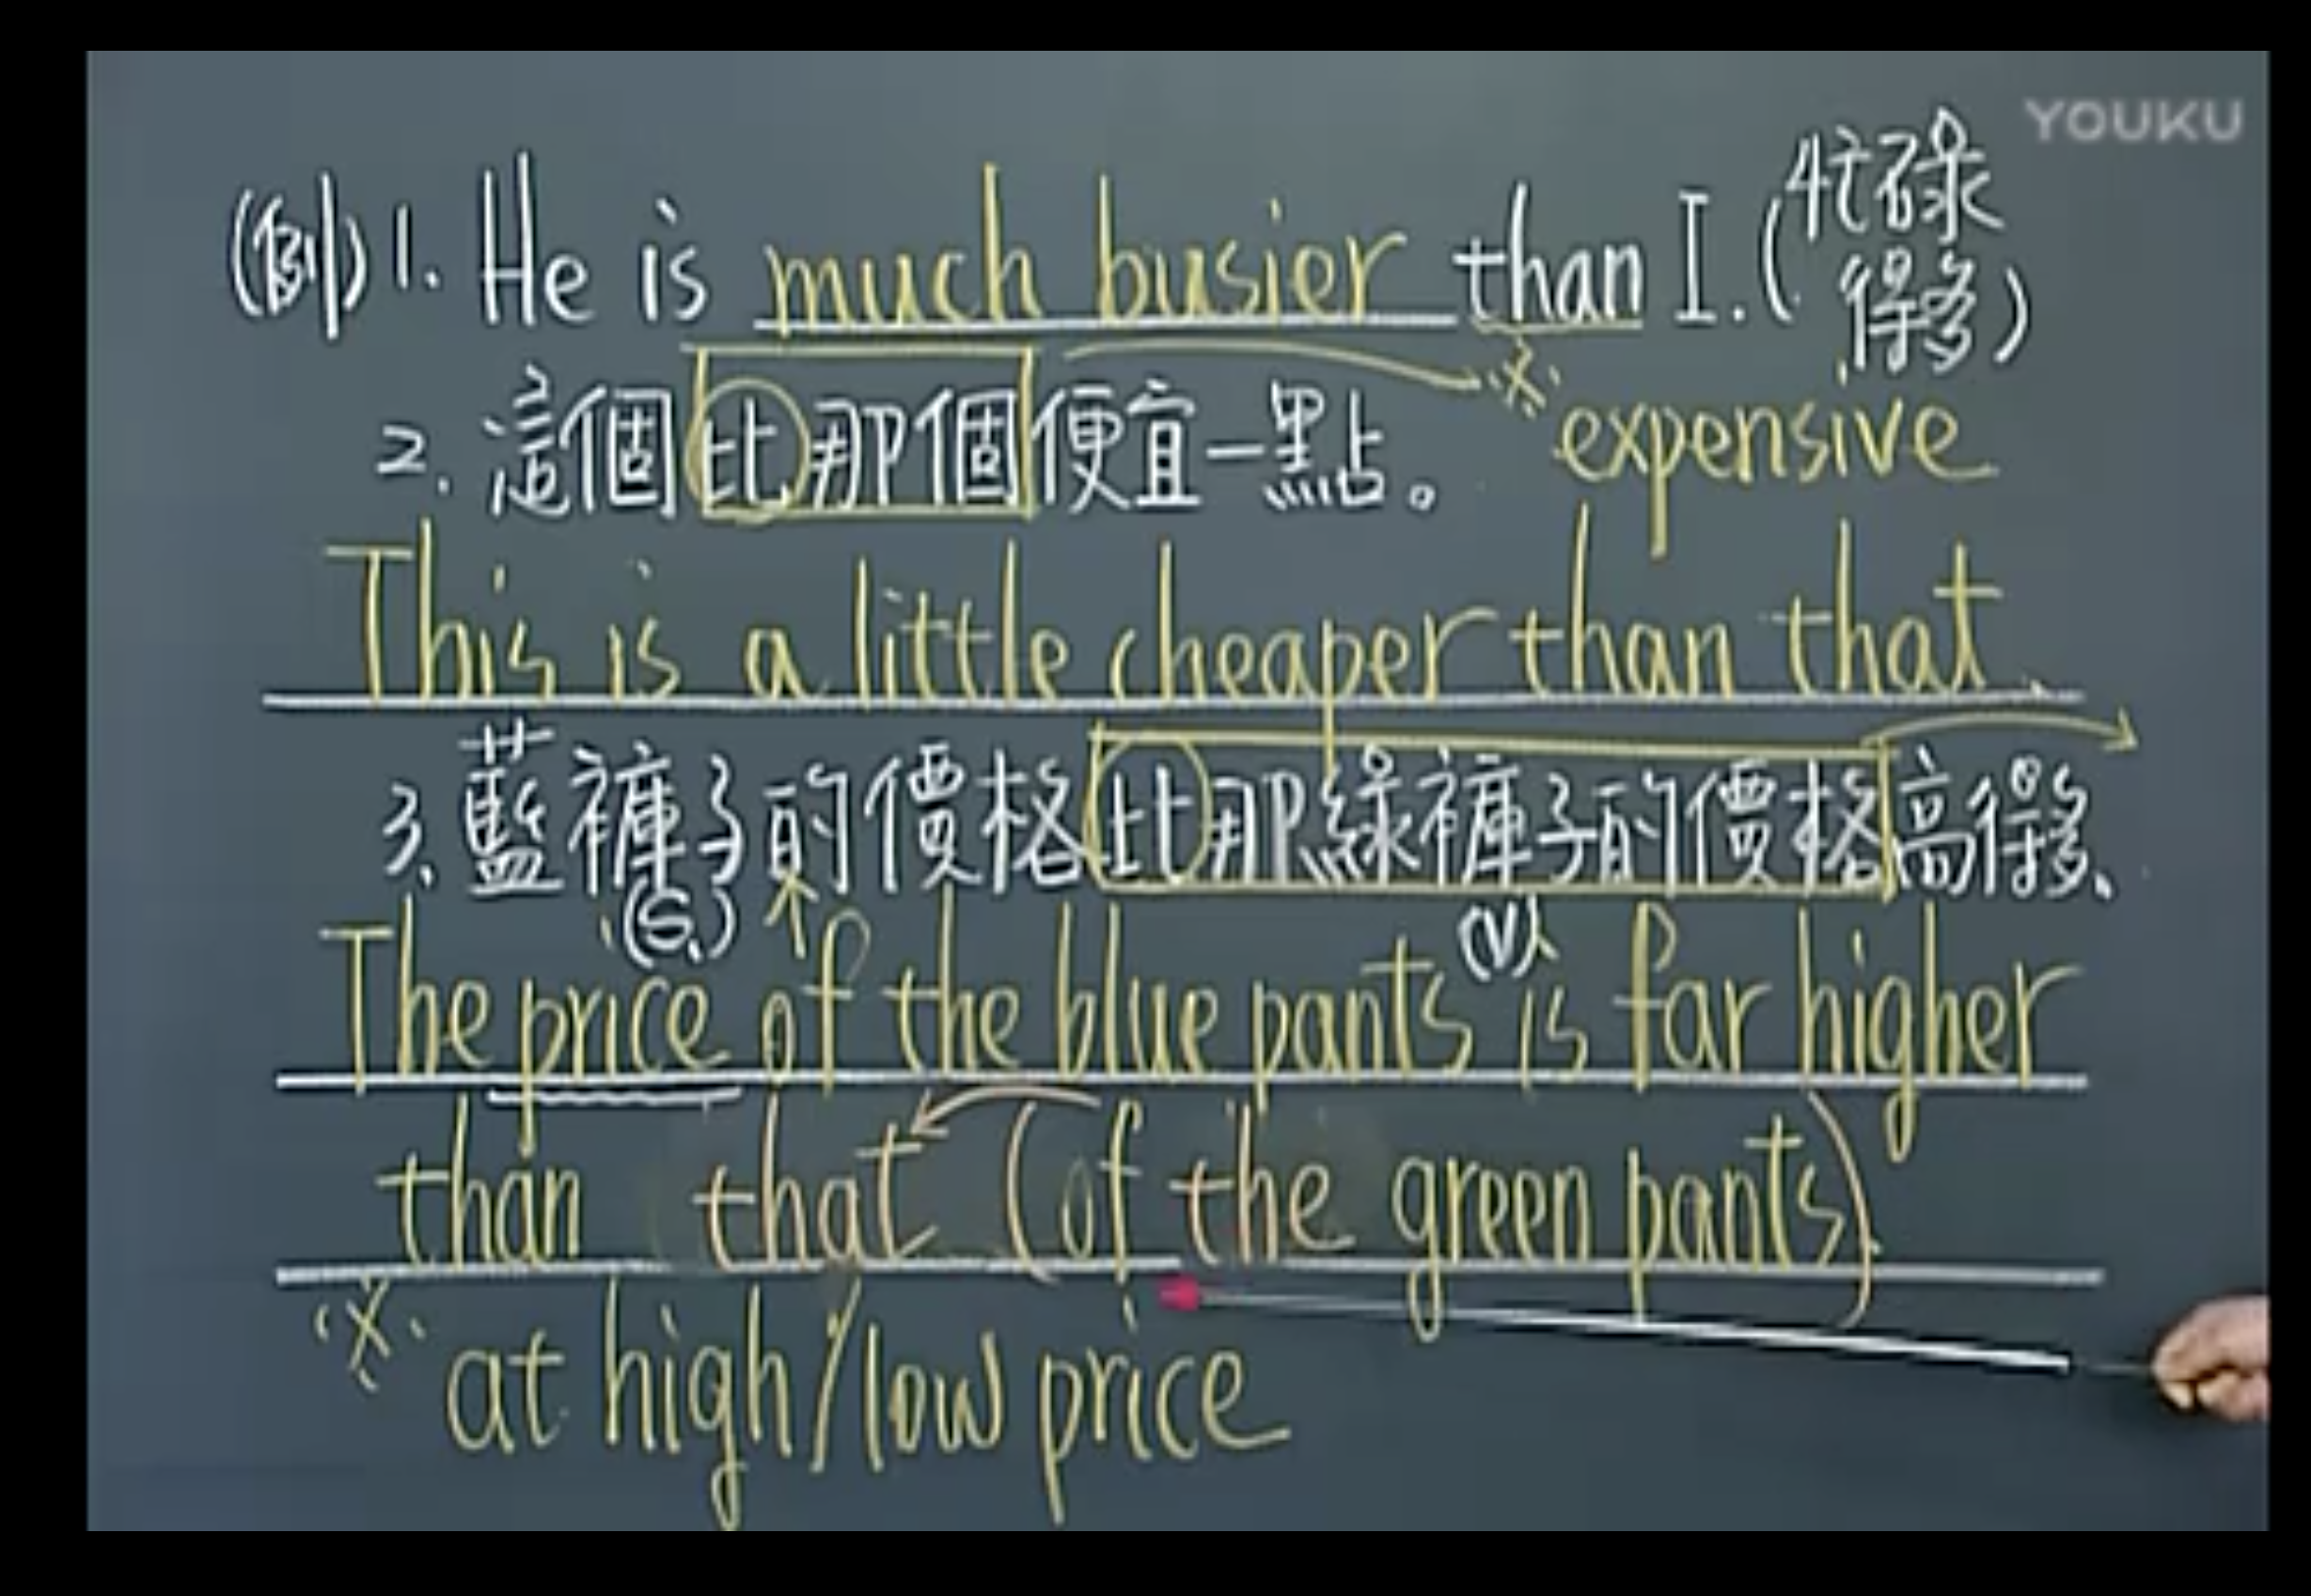 YOUKU
(例) 1. He is much busier than I. (忙碌得多)
2. 這個比那個便宜一點。 ※ expensive
This is a little cheaper than that.
3. 藍褲子的價格比那綠褲子的價格高得多、
(S.) (V)
The price of the blue pants is far higher
than that (of the green pants).
※ at high/low price